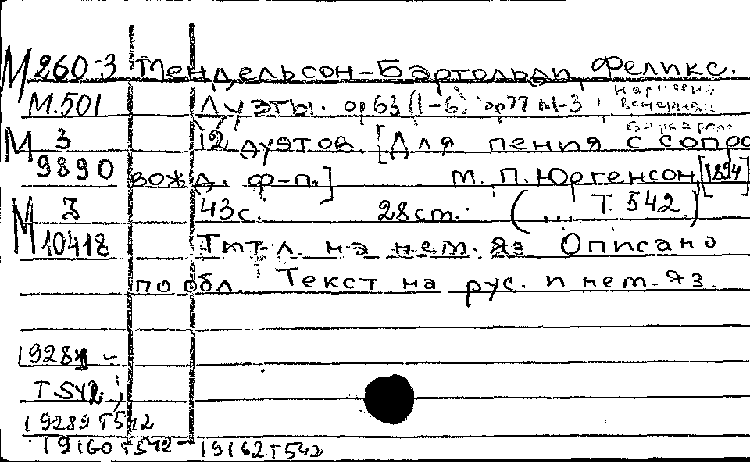 М 260-3 Мендельсон-Бартольди, Феликс.
М.501 Дуэты. ор 63 (1-6) ор 77 №1-3
М 3 12 дуэтов. [Для пения с сопро
9890 вожд. ф-п.] М. П. Юргенсон [1894]
М 3 43с. 28ст. (... Т. 542)
10418 Титл. на нем. яз Описано
по обл. Текст на рус. и нем. яз.
19281 -
Т.542;
19289 Т542
19160 Т542 - 19162 Т542